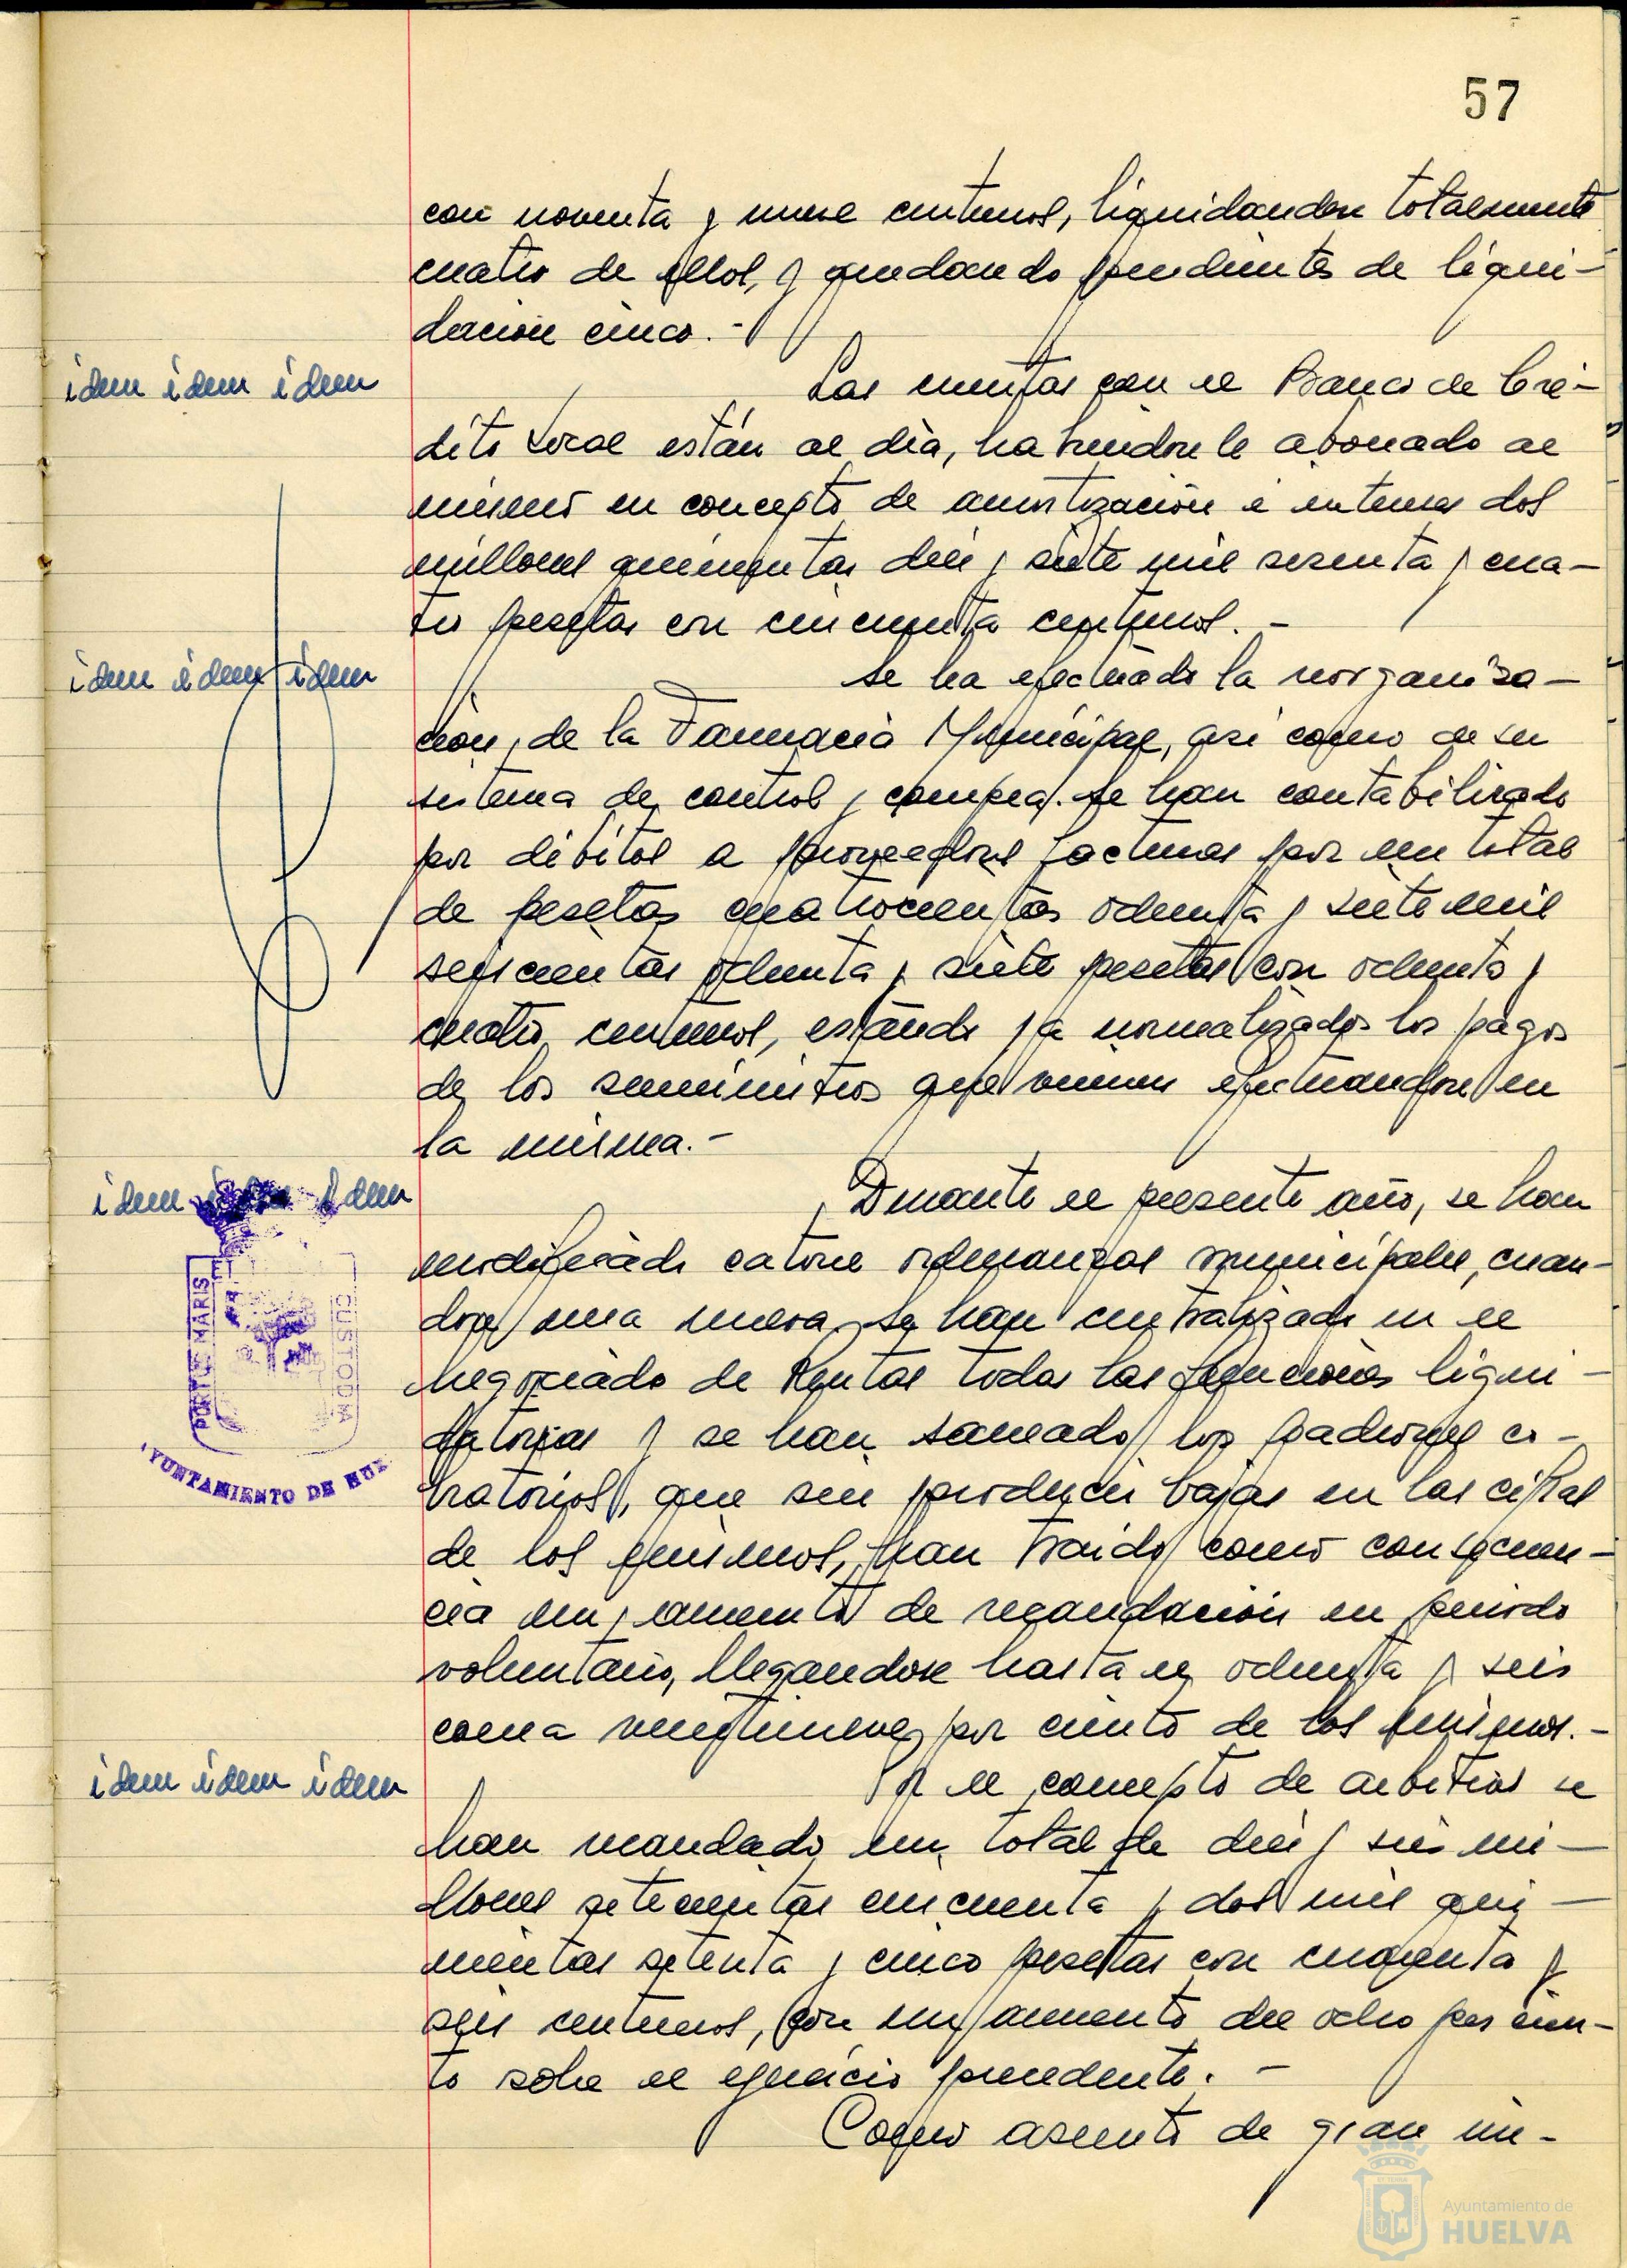 57
con noventa y nueve centimos, liquidandose totalmente
cuatro de ellos, y quedando pendientes de liqui-
dación cinco.-
idem idem idem
Las cuentas con el Banco de Cré-
dito Local están al dia, habiendosele abonado al
mismo en concepto de amortización e intereses dos
millones quinientas diez y siete mil sesenta y cua-
tro pesetas con cincuenta centimos. -
idem idem idem
Se ha efectuado la reorganiza-
ción, de la Farmacia Municipal, asi como de su
sistema de control y compras. Se han contabilizado
por débitos a proveedores facturas por un total
de pesetas cuatrocientas ochenta y siete mil
seiscientas ochenta y siete pesetas con ochenta y
cuatro centimos, estando ya normalizados los pagos
de los suministros que vienen efectuandose en
la misma.-
idem idem idem
Durante el presente año, se han
modificado catorce ordenanzas municipales, crean-
dose una nueva, se han centralizado en el
Negociado de Rentas todas las funciones liqui-
datorias y se han saneado los padrones co-
bratorios, que sin producir bajas en las cifras
de los mismos, han traido como consecuen-
cia un aumento de recaudación en periodo
voluntario, llegandose hasta el ochenta y seis
coma veintinueve por ciento de los mismos.-
PORTUS MARIS ET CUSTODIA
AYUNTAMIENTO DE HUE
idem idem idem
Por el concepto de arbitrios se
han recaudado un total de diez y seis mi-
llones setecientas cincuenta y dos mil qui-
nientas setenta y cinco pesetas con cincuenta y
seis centimos, con un aumento del ocho por cien-
to sobre el ejercicio precedente. -
Como asunto de gran im-
Ayuntamiento de
HUELVA